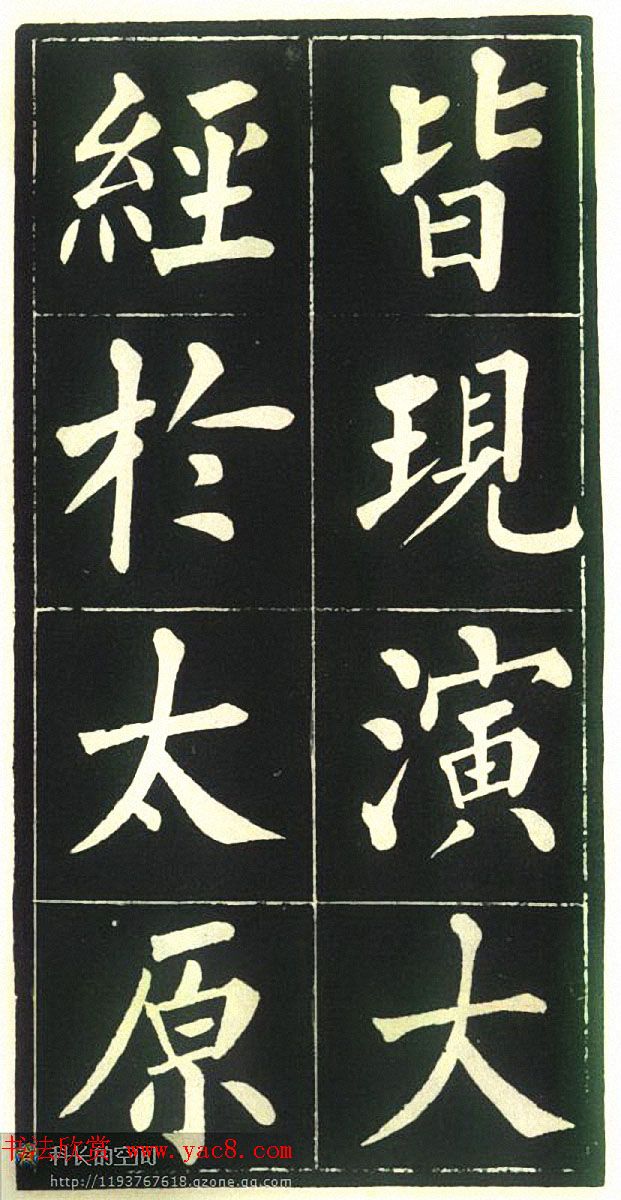 皆現演大
經於太原
书法欣赏 www.yac8.com
科长的空间
http://1193767618.qzone.qq.com